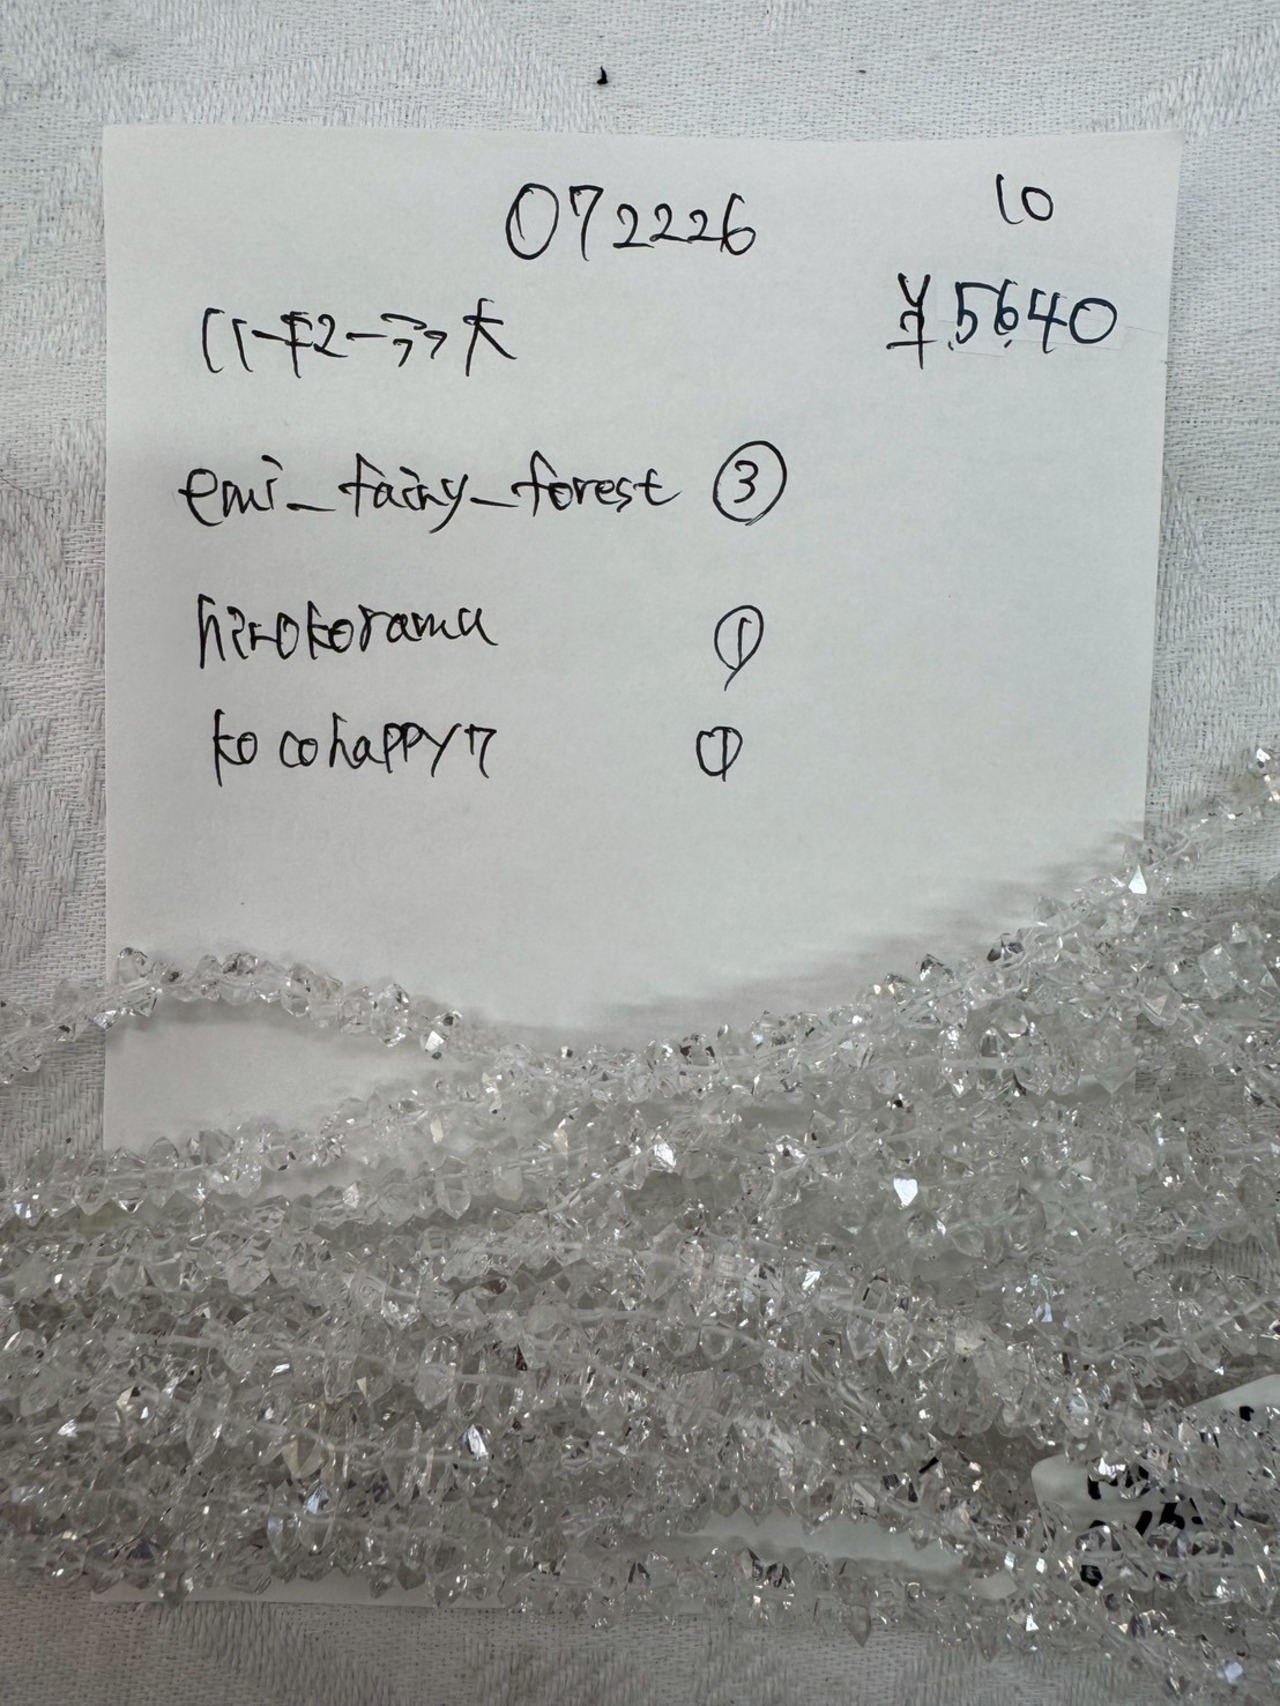 072226
10
¥5640
ハーキマーラフ大
emi_fairy_forest ③
hirokorama ①
kocohappy7 ①